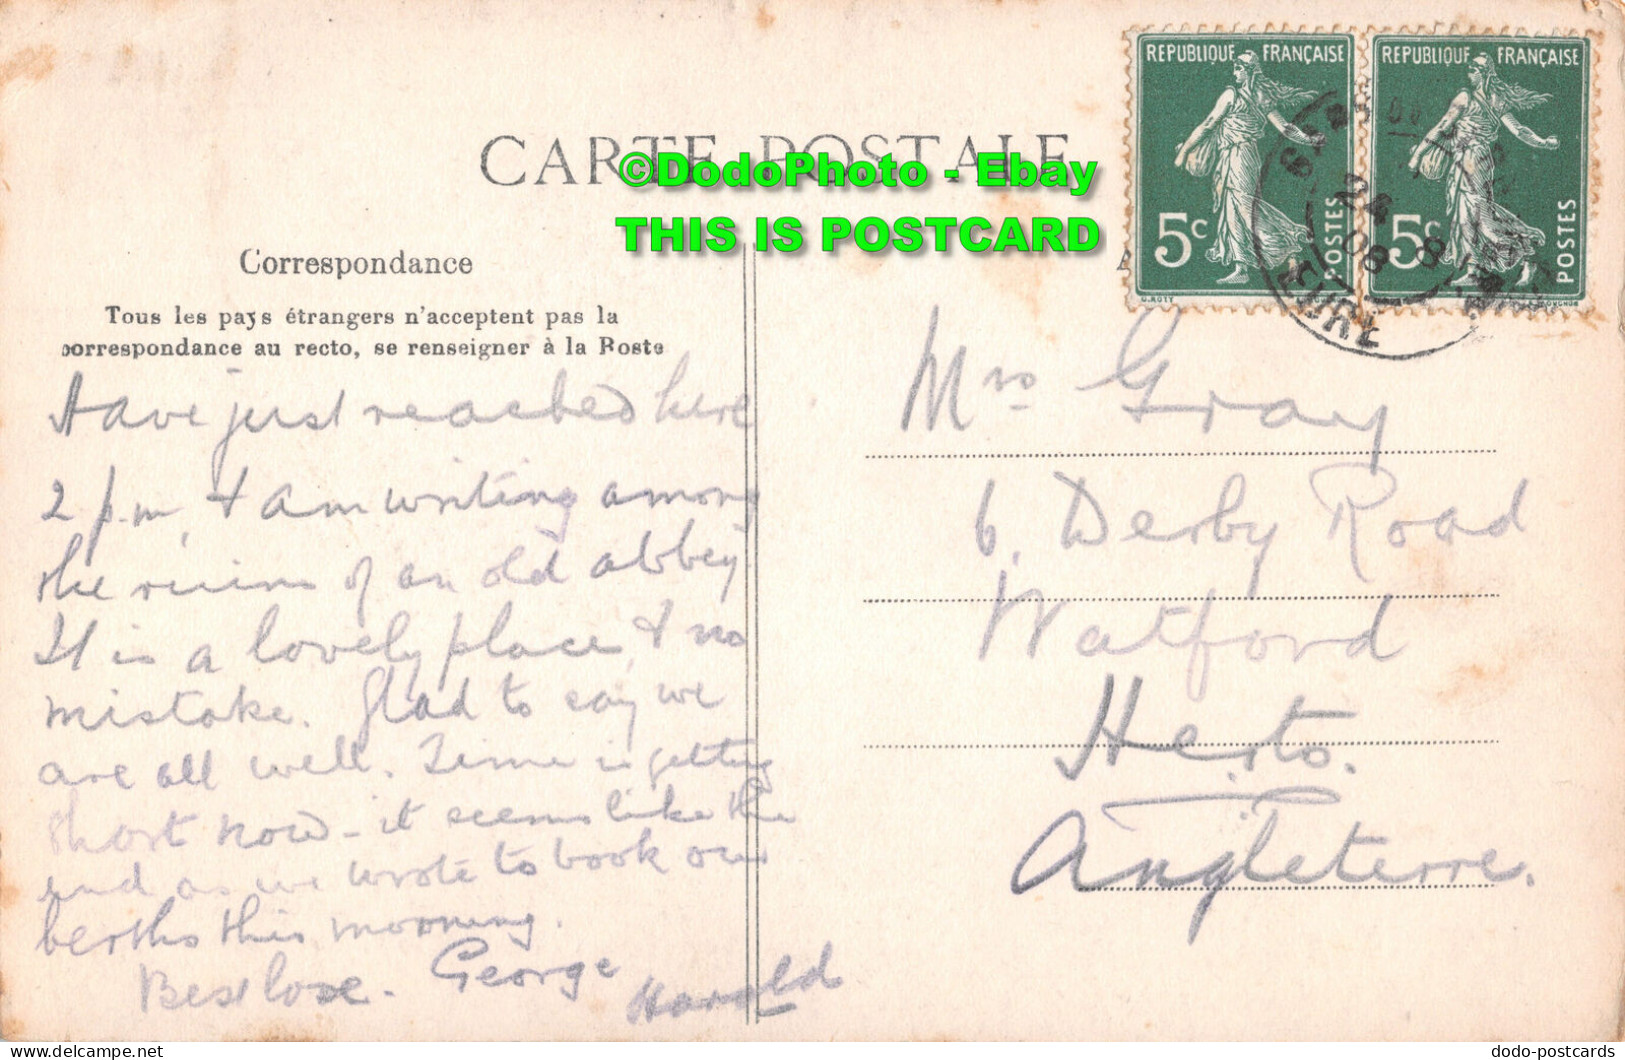 CARTE POSTALE
©DodoPhoto - Ebay
THIS IS POSTCARD
REPUBLIQUE FRANÇAISE
5c
POSTES
O.ROTY
REPUBLIQUE FRANÇAISE
5c
POSTES
24
8
08
EURE
Correspondance
Tous les pays étrangers n'acceptent pas la
correspondance au recto, se renseigner à la Poste
Have just reached here
2 p.m, & am writing among
the ruins of an old abbey
It is a lovely place, & no
mistake. Glad to say we
are all well. Time is getting
short now - it seems like the
end as we wrote to book our
berths this morning.
Best love. George
Harold
Mrs Gray
6, Derby Road
Watford
Herts.
Angleterre.
delcampe.net
dodo-postcards